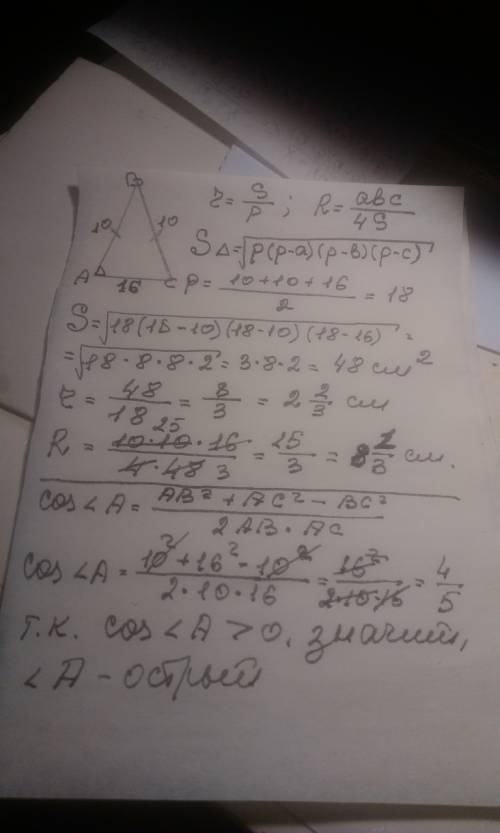 B
r = S/p ; R = abc/4S
10 10
S△ = √p(p-a)(p-b)(p-c)
A 16 C
p = 10+10+16/2 = 18
S = √18(18-10)(18-10)(18-16) =
= √18·8·8·2 = 3·8·2 = 48 см²
r = 48/18 = 8/3 = 2 2/3 см
25
R = 10·10·16/4·48 3 = 25/3 = 8 1/3 см.
cos∠A = AB² + AC² - BC²/2AB·AC
cos∠A = 10² + 16² - 10²/2·10·16 = 16²/2·10·16 = 4/5
т.к. cos∠A > 0, значит,
∠A - острый